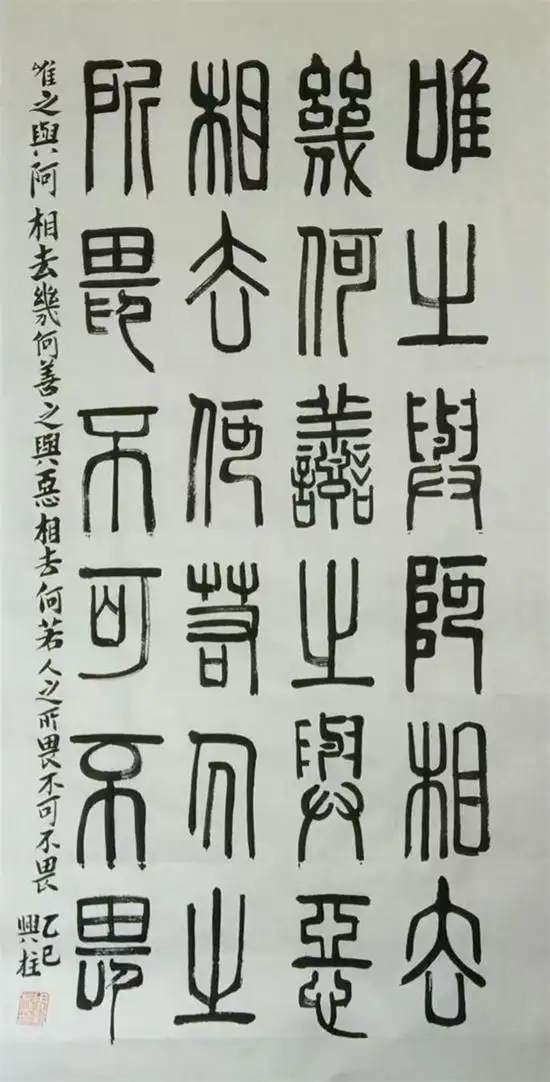 唯之與阿相去
幾何善之與惡
相去何若人之
所畏不可不畏
唯之與阿相去幾何善之與惡相去何若人之所畏不可不畏
乙巳
興柱